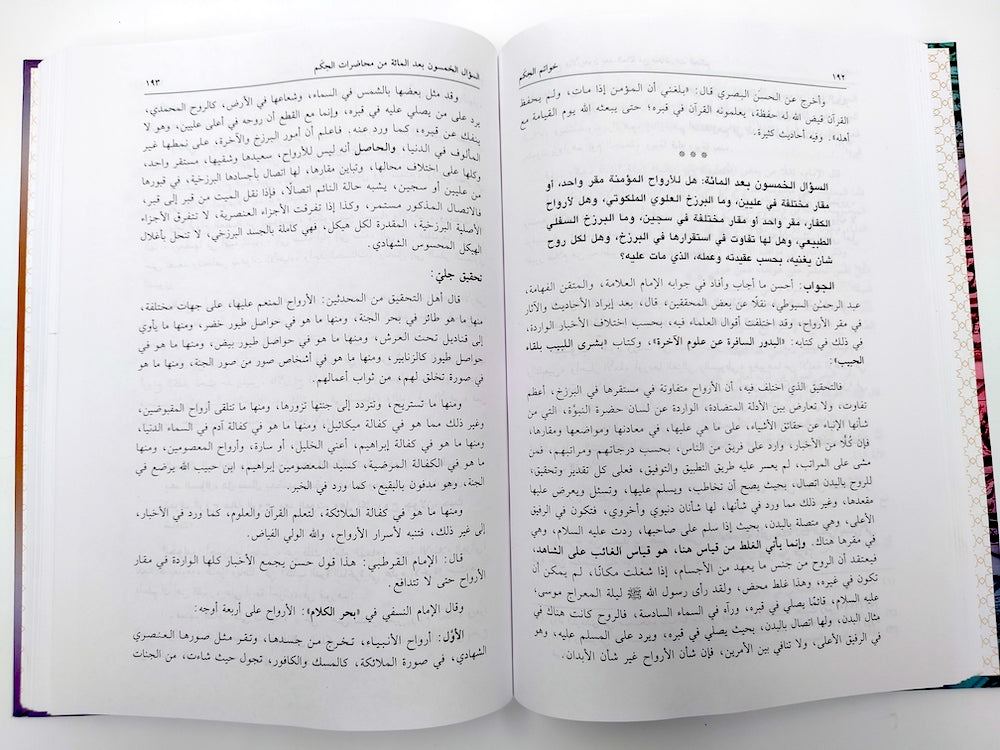 خواتم الحكم
١٩٢
وأخرج عن الحسن البصري قال: «بلغني أن المؤمن إذا مات، ولم يحفظ
القرآن قيض الله له حفظة، يعلمونه القرآن في قبره؛ حتى يبعثه الله يوم القيامة مع
أهله». وفيه أحاديث كثيرة.
***
السؤال الخمسون بعد المائة: هل للأرواح المؤمنة مقر واحد، أو
مقار مختلفة في عليين، وما البرزخ العلوي الملكوتي، وهل لأرواح
الكفار، مقر واحد أو مقار مختلفة في سجين، وما البرزخ السفلي
الطبيعي، وهل لها تفاوت في استقرارها في البرزخ، وهل لكل روح
شان يغنيه، بحسب عقيدته وعمله، الذي مات عليه؟
الجواب: أحسن ما أجاب وأفاد في جوابه الإمام العلامة، والمتقن الفهامة،
عبد الرحمٰن السيوطي، نقلًا عن بعض المحققين، قال، بعد إيراد الأحاديث والآثار
في مقر الأرواح، وقد اختلفت أقوال العلماء فيه، بحسب اختلاف الأخبار الواردة،
في ذلك في كتابه: «البدور السافرة عن علوم الآخرة»، وكتاب «بشرى اللبيب بلقاء
الحبيب»:
فالتحقيق الذي اختلف فيه، أن الأرواح متفاوتة في مستقرها في البرزخ، أعظم
تفاوت، ولا تعارض بين الأدلة المتضادة، الواردة عن لسان حضرة النبوَّة، التي من
شأنها الإنباء عن حقائق الأشياء، على ما هي عليها، في معادنها ومواضعها ومقارها،
فإن كُلًّا من الأخبار، وارد على فريق من الناس، بحسب درجاتهم ومراتبهم، فمن
مشى على المراتب، لم يعسر عليه طريق التطبيق والتوفيق، فعلى كل تقدير وتحقيق،
للروح بالبدن اتصال، بحيث يصح أن تخاطب، ويسلم عليها، وتسئل ويعرض عليها
مقعدها، وغير ذلك مما ورد في شأنها، لها شأنان دنيوي وأخروي، فتكون في الرفيق
الأعلى، وهي متصلة بالبدن، بحيث إذا سلم على صاحبها، ردت عليه السلام، وهي
في مقرها هناك. وإنما يأتي الغلط من قياس هنا، هو قياس الغائب على الشاهد،
فيعتقد أن الروح من جنس ما يعهد من الأجسام، إذا شغلت مكانًا، لم يمكن أن
تكون في غيره، وهذا غلط محض، ولقد رأى رسول الله ﷺ ليلة المعراج موسى،
عليه السلام، قائمًا يصلي في قبره، ورآه في السماء السادسة، فالروح كانت هناك في
مثال البدن، ولها اتصال بالبدن، بحيث يصلي في قبره، ويرد على المسلم عليه، وهو
في الرفيق الأعلى، ولا تنافي بين الأمرين، فإن شأن الأرواح غير شأن الأبدان.
السؤال الخمسون بعد المائة من محاضرات الحِكَم
١٩٣
وقد مثل بعضها بالشمس في السماء، وشعاعها في الأرض، كالروح المحمدي،
يرد على من يصلي عليه في قبره، وإنما مع القطع أن روحه في أعلى عليين، وهو لا
ينفك عن قبره، كما ورد عنه. فاعلم أن أمور البرزخ والآخرة، على نمطها غير
المألوف في الدنيا، والحاصل أنه ليس للأرواح، سعيدها وشقيها، مستقر واحد،
وكلها على اختلاف محالها، وتباين مقارها، لها اتصال بأجسادها البرزخية، في قبورها
من عليين أو سجين، يشبه حالة النائم اتصالًا، فإذا نقل الميت من قبر إلى قبر،
فالاتصال المذكور مستمر، وكذا إذا تفرقت الأجزاء العنصرية، لا تتفرق الأجزاء
الأصلية البرزخية، المقدرة لكل هيكل، فهي كاملة بالجسد البرزخي، لا تنحل بأغلال
الهيكل المحسوس الشهادي.
تحقيق جليّ:
قال أهل التحقيق من المحدثين: الأرواح المنعم عليها، على جهات مختلفة،
منها ما هو طائر في بحر الجنة، ومنها ما هو في حواصل طيور خضر، ومنها ما يأوي
إلى قناديل تحت العرش، ومنها ما هو في حواصل طيور بيض، ومنها ما هو في
حواصل طيور كالزنابير، ومنها ما هو في أشخاص صور من صور الجنة، ومنها ما هو
في صورة تخلق لهم، من ثواب أعمالهم.
ومنها ما تستريح، وتتردد إلى جنتها تزورها، ومنها ما تتلقى أرواح المقبوضين،
وغير ذلك مما هو في كفالة ميكائيل، ومنها ما هو في كفالة آدم في السماء الدنيا،
ومنها ما هو في كفالة إبراهيم، أعني الخليل، أو سارة، وأرواح المعصومين، ومنها
ما هو في الكفالة المرضية، كسيد المعصومين إبراهيم، ابن حبيب الله يرضع في
الجنة، وهو مدفون بالبقيع، كما ورد في الخبر.
ومنها ما هو في كفالة الملائكة، لتعلم القرآن والعلوم، كما ورد في الأخبار،
إلى غير ذلك، فتنبه لأسرار الأرواح، والله الولي الفياض.
قال: الإمام القرطبي: هذا قول حسن يجمع الأخبار كلها الواردة في مقار
الأرواح حتى لا تتدافع.
وقال الإمام النسفي في «بحر الكلام»: الأرواح على أربعة أوجه:
الأوَّل: أرواح الأنبياء، تخرج من جسدها، وتقر مثل صورها العنصري
الشهادي، في صورة الملائكة، كالمسك والكافور، تجول حيث شاءت، من الجنات